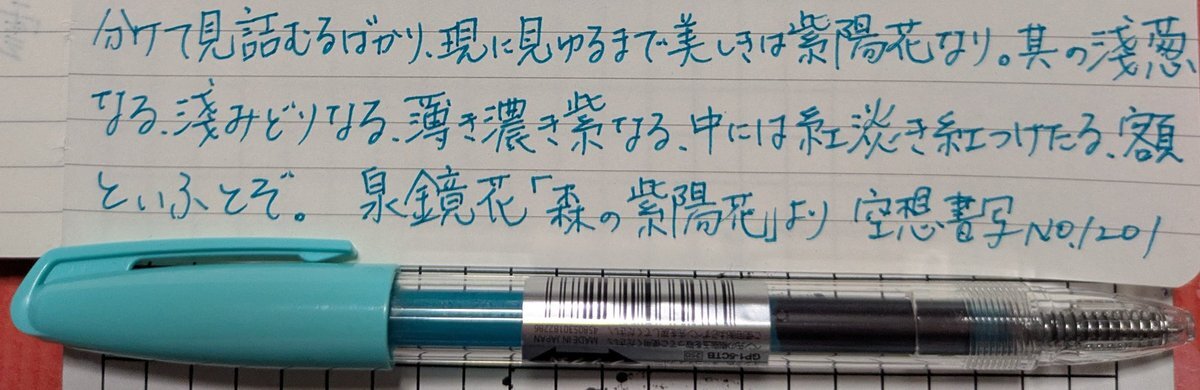 分けて見詰むるばかり、現に見ゆるまで美しきは紫陽花なり。其の淺葱
なる、淺みどりなる、薄き濃き紫なる、中には紅淡き紅つけたる、額
といふとぞ。 泉鏡花「森の紫陽花」より 空想書写NO,1201
MADE IN JAPAN
GP1-5CTB